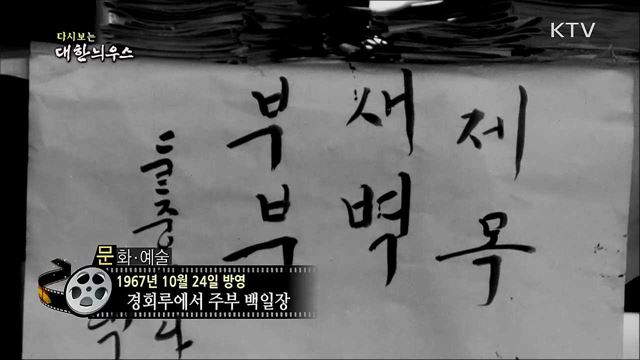 다시보는
대한늬우스
KTV
제목
새벽
부부
둘중
문화·예술
1967년 10월 24일 방영
경회루에서 주부 백일장